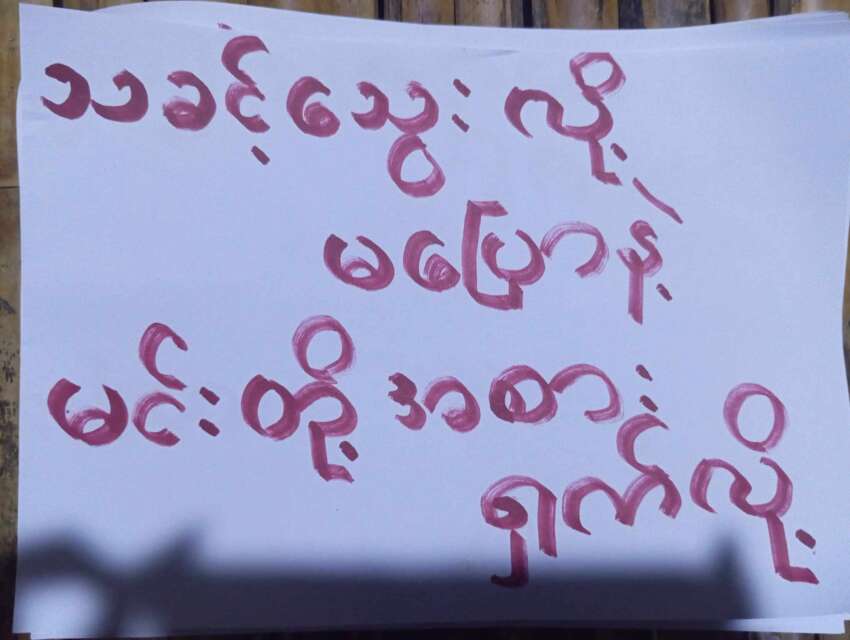 သခင့်သွေး လို့
မပြောနဲ့
မင်းတို့ အစား
ရှက်လို့